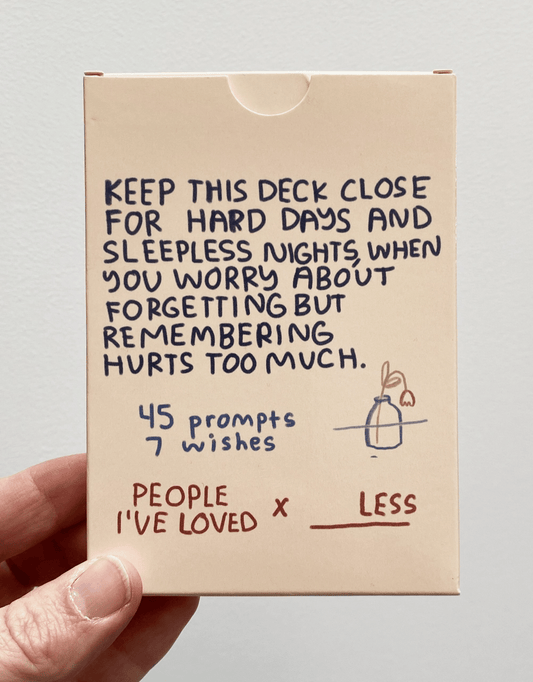 KEEP THIS DECK CLOSE
FOR HARD DAYS AND
SLEEPLESS NIGHTS, WHEN
YOU WORRY ABOUT
FORGETTING BUT
REMEMBERING
HURTS TOO MUCH.
45 prompts
7 wishes
PEOPLE
I'VE LOVED x ____LESS